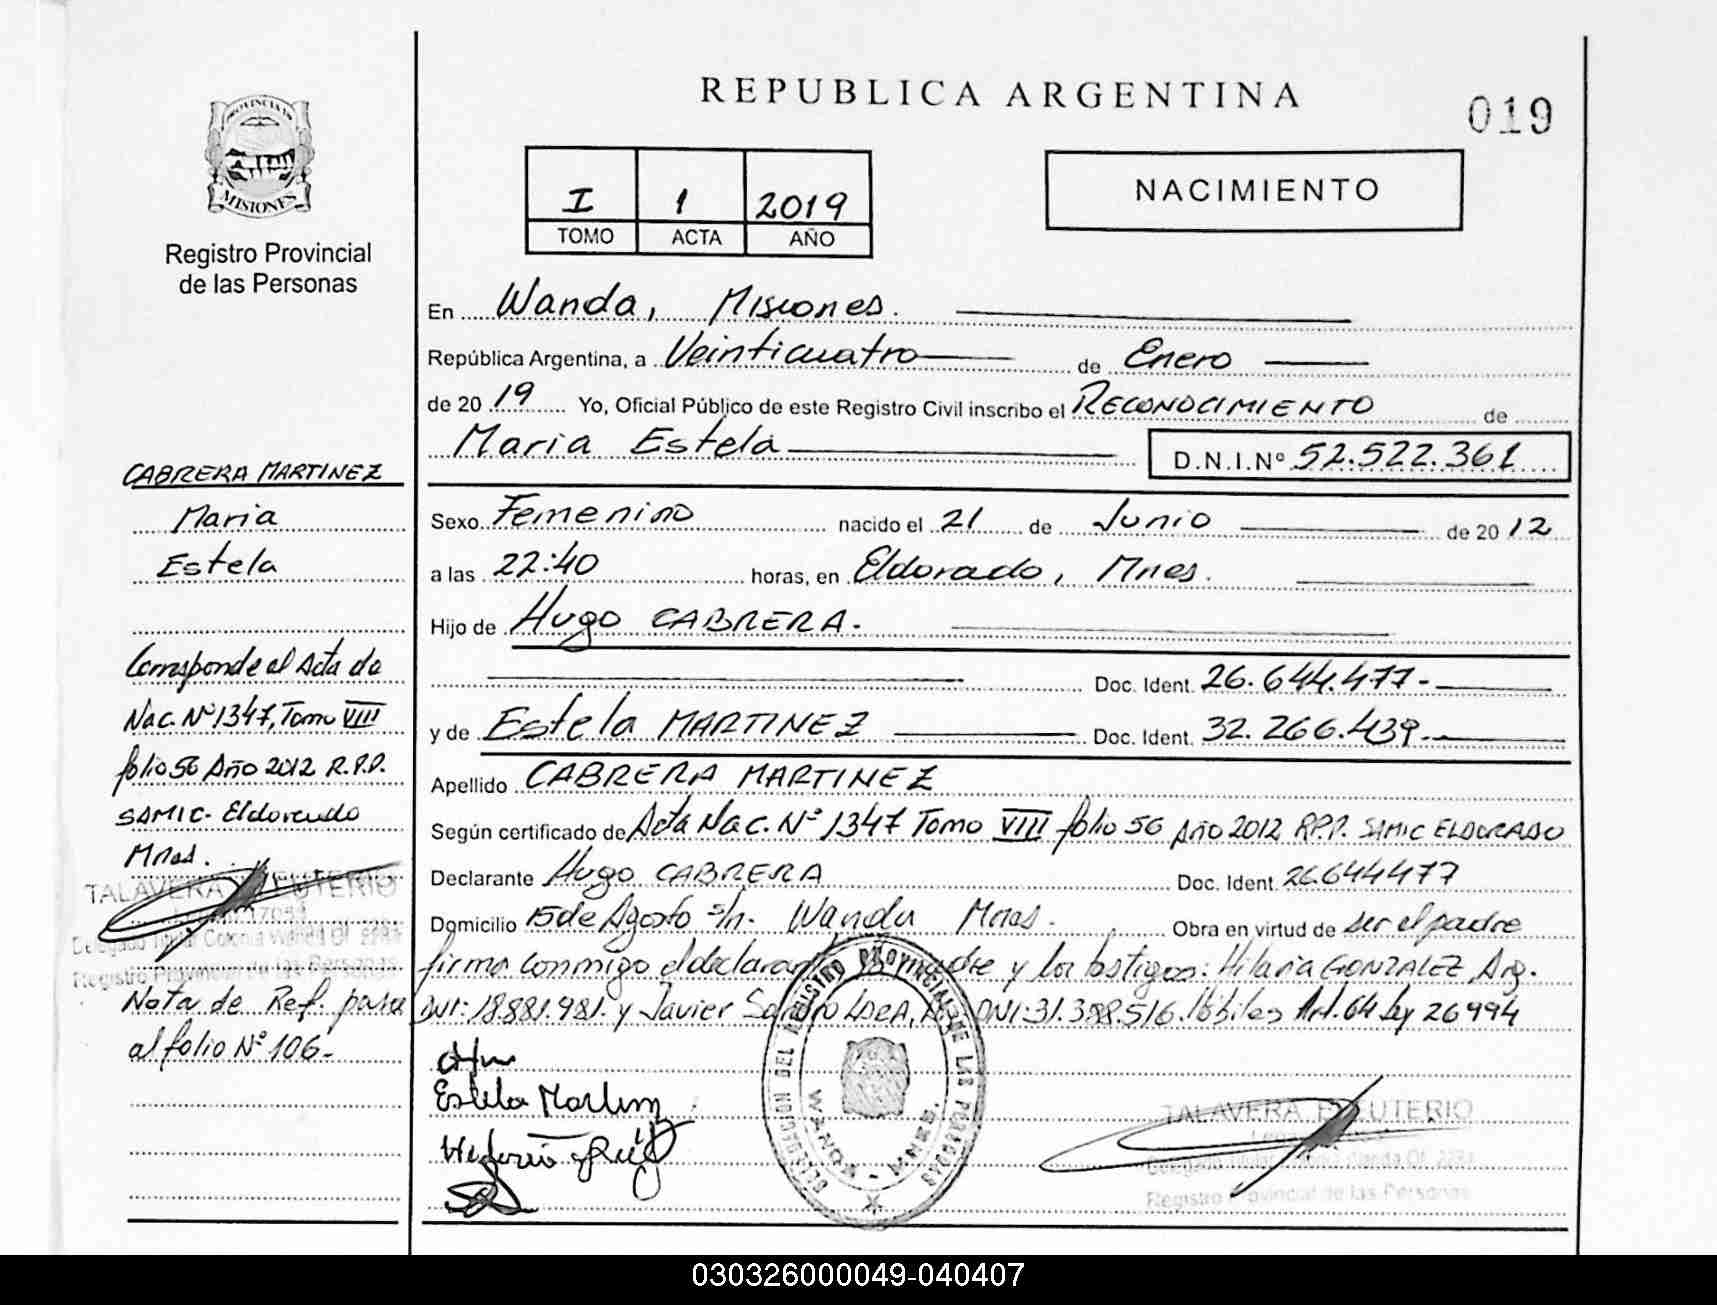 REPUBLICA ARGENTINA
019
PROVINCIA DE
MISIONES
Registro Provincial
de las Personas
I 1 2019
TOMO ACTA AÑO
NACIMIENTO
En Wanda, Misiones.
República Argentina, a Veinticuatro de Enero
de 2019 Yo, Oficial Público de este Registro Civil inscribo el RECONOCIMIENTO de
Maria Estela D.N.I.Nº 52.522.361
Sexo Femenino nacido el 21 de Junio de 2012
a las 22:40 horas, en Eldorado, Mnes.
Hijo de Hugo CABRERA.
Doc. Ident. 26.644.477-
y de Estela MARTINEZ Doc. Ident. 32.266.439
Apellido CABRERA MARTINEZ
Según certificado de Acta Nac. Nº 1347 Tomo VIII folio 56 Año 2012 R.P.P. SAMIC ELDORADO
Declarante Hugo CABRERA Doc. Ident. 26644477
Domicilio 15 de Agosto s/n. Wanda Mnes. Obra en virtud de ser el padre
firma conmigo el declarante madre y los testigos: Hilaria GONZALEZ, Arg.
DNI: 18.881.981. y Javier DNI: 31.388.516. Hábiles Art. 64 Ley 26994
CABRERA MARTINEZ
Maria
Estela
Corresponde al Acta de
Nac. Nº 1347, Tomo VIII
folio 56 Año 2012 R.P.P.
SAMIC- Eldorado
Mnes.
TALAVERA ELEUTERIO
Delegado Titular Colonia Wanda Of. 2281
Registro Provincial de las Personas
Nota de Ref. pasa
al folio Nº 106-
Estela Martinez
DELEGACION DEL REGISTRO PROVINCIAL DE LAS PERSONAS
WANDA - MNES.
TALAVERA ELEUTERIO
Delegado Titular Colonia Wanda Of. 2281
Registro Provincial de las Personas
030326000049-040407